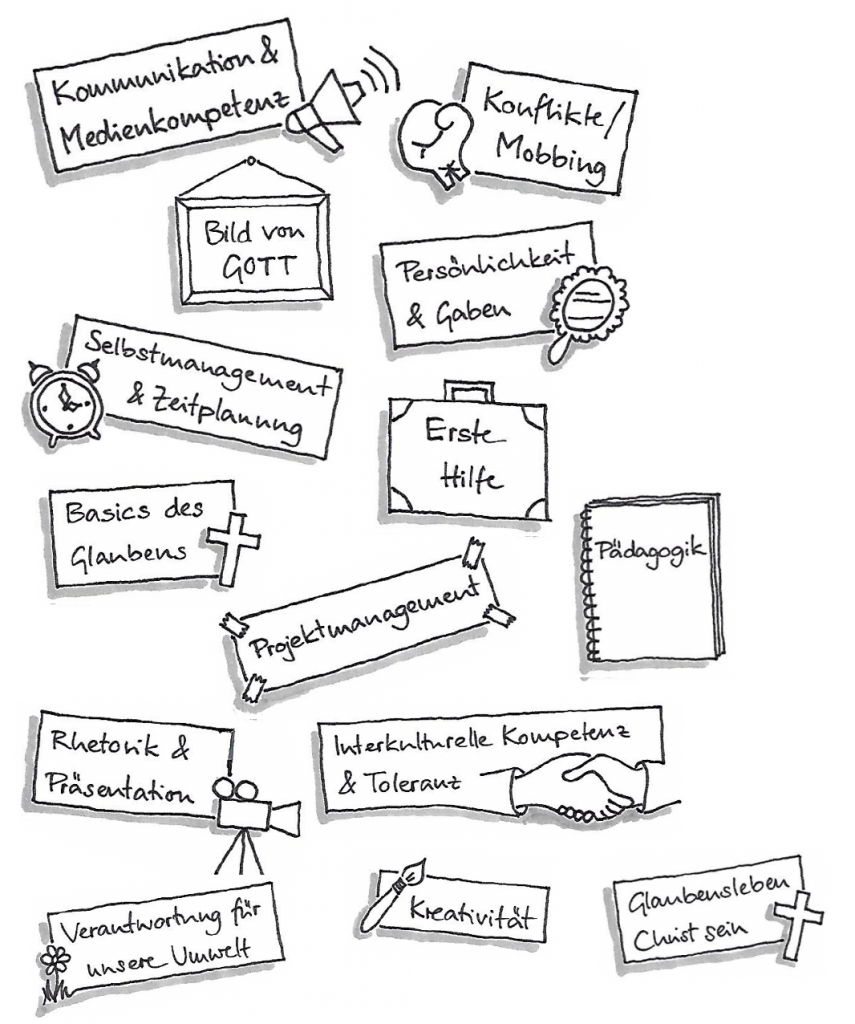 Kommunikation &
Medienkompetenz
Konflikte/
Mobbing
Bild von
GOTT
Persönlichkeit
& Gaben
Selbstmanagement
& Zeitplanung
Erste
Hilfe
Basics des
Glaubens
Pädagogik
Projektmanagement
Rhetorik &
Präsentation
Interkulturelle Kompetenz
& Toleranz
Verantwortung für
unsere Umwelt
Kreativität
Glaubensleben
Christ sein